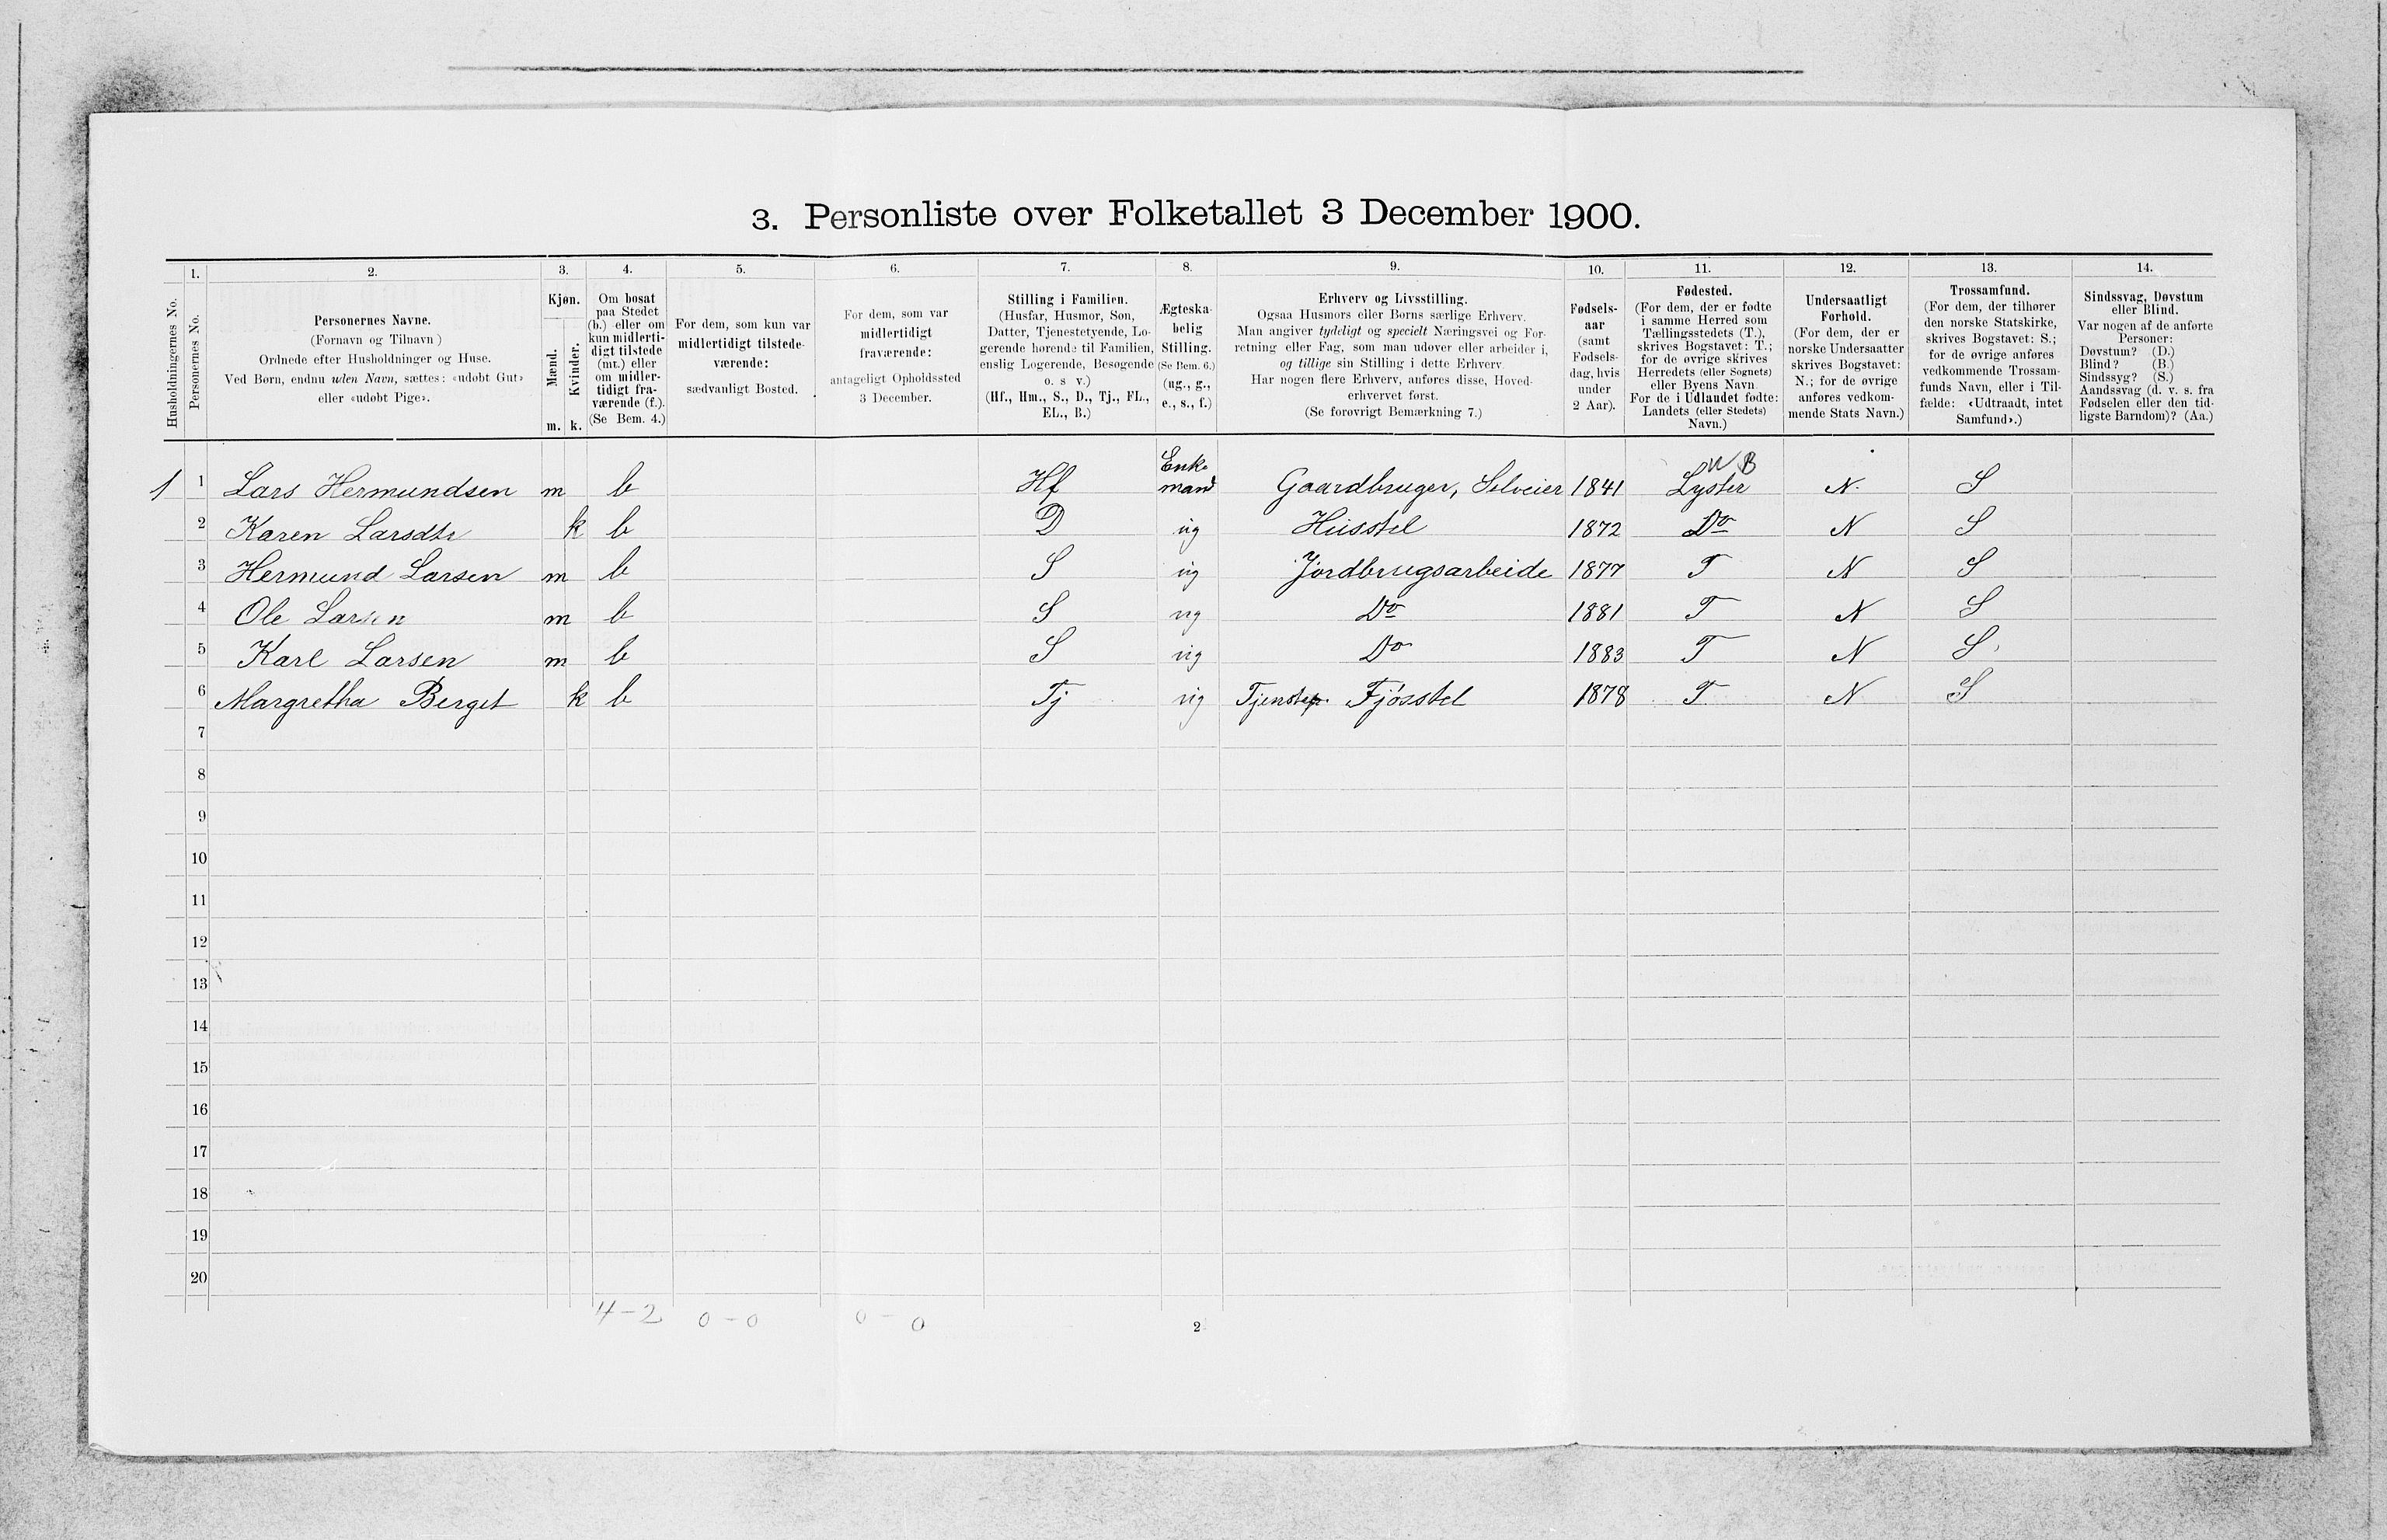 3. Personliste over Folketallet 3 December 1900.
Husholdningernes No.
1.
Personernes No.
2.
Personernes Navne.
(Fornavn og Tilnavn)
Ordnede efter Husholdninger og Huse.
Ved Børn, endnu uden Navn, sættes: «udøbt Gut»
eller «udøbt Pige».
3.
Kjøn.
Mænd.
Kvinder.
m. k.
4.
Om bosat
paa Stedet
(b.) eller om
kun midlerti-
digt tilstede
(mt.) eller
om midler-
tidigt fra-
værende (f.).
(Se Bem. 4.)
5.
For dem, som kun var
midlertidigt tilstede-
værende:
sædvanligt Bosted.
6.
For dem, som var
midlertidigt
fraværende:
antageligt Opholdssted
3 December.
7.
Stilling i Familien.
(Husfar, Husmor, Søn,
Datter, Tjenestetyende, Lo-
gerende hørende til Familien,
enslig Logerende, Besøgende
o. s v.)
(Hf., Hm., S., D., Tj., FL.,
EL., B.)
8.
Ægteska-
belig
Stilling.
(Se Bem. 6.)
(ug., g.,
e., s., f.)
9.
Erhverv og Livsstilling.
Ogsaa Husmors eller Børns særlige Erhverv.
Man angiver tydeligt og specielt Næringsvei og For-
retning eller Fag, som man udøver eller arbeider i,
og tillige sin Stilling i dette Erhverv.
Har nogen flere Erhverv, anføres disse, Hoved-
erhvervet først.
(Se forøvrigt Bemærkning 7.)
10.
Fødsels-
aar
(samt
Fødsels-
dag, hvis
under
2 Aar).
11.
Fødested.
(For dem, der er fødte
i samme Herred som
Tællingsstedets (T.),
skrives Bogstavet: T.;
for de øvrige skrives
Herredets (eller Sognets)
eller Byens Navn.
For de i Udlandet fødte:
Landets (eller Stedets)
Navn.)
12.
Undersaatligt
Forhold.
(For dem, der er
norske Undersaatter
skrives Bogstavet:
N.; for de øvrige
anføres vedkom-
mende Stats Navn.)
13.
Trossamfund.
(For dem, der tilhører
den norske Statskirke,
skrives Bogstavet: S.;
for de øvrige anføres
vedkommende Trossam-
funds Navn, eller i Til-
fælde: «Udtraadt, intet
Samfund».)
14.
Sindssvag, Døvstum
eller Blind.
Var nogen af de anførte
Personer:
Døvstum? (D.)
Blind? (B.)
Sindssyg? (S.)
Aandssvag (d. v. s. fra
Fødselen eller den tid-
ligste Barndom)? (Aa.)
1 1 Lars Hermundsen m b Hf Enke mand Gaardbruger, Selveier 1841 N B Lyster N. S
2 Karen Larsdtr k b D ug Husstel 1872 Do N S
3 Hermund Larsen m b S ug Jordbrugsarbeide 1877 T N S
4 Ole Larsen m b S ug Do 1881 T N S
5 Karl Larsen m b S ug Do 1883 T N S
6 Margretha Berget k b Tj ug Tjenstep. Fjøsstel 1878 T N S
7
8
9
10
11
12
13
14
15
16
17
18
19
20
4 - 2 0 - 0 0 - 0
2